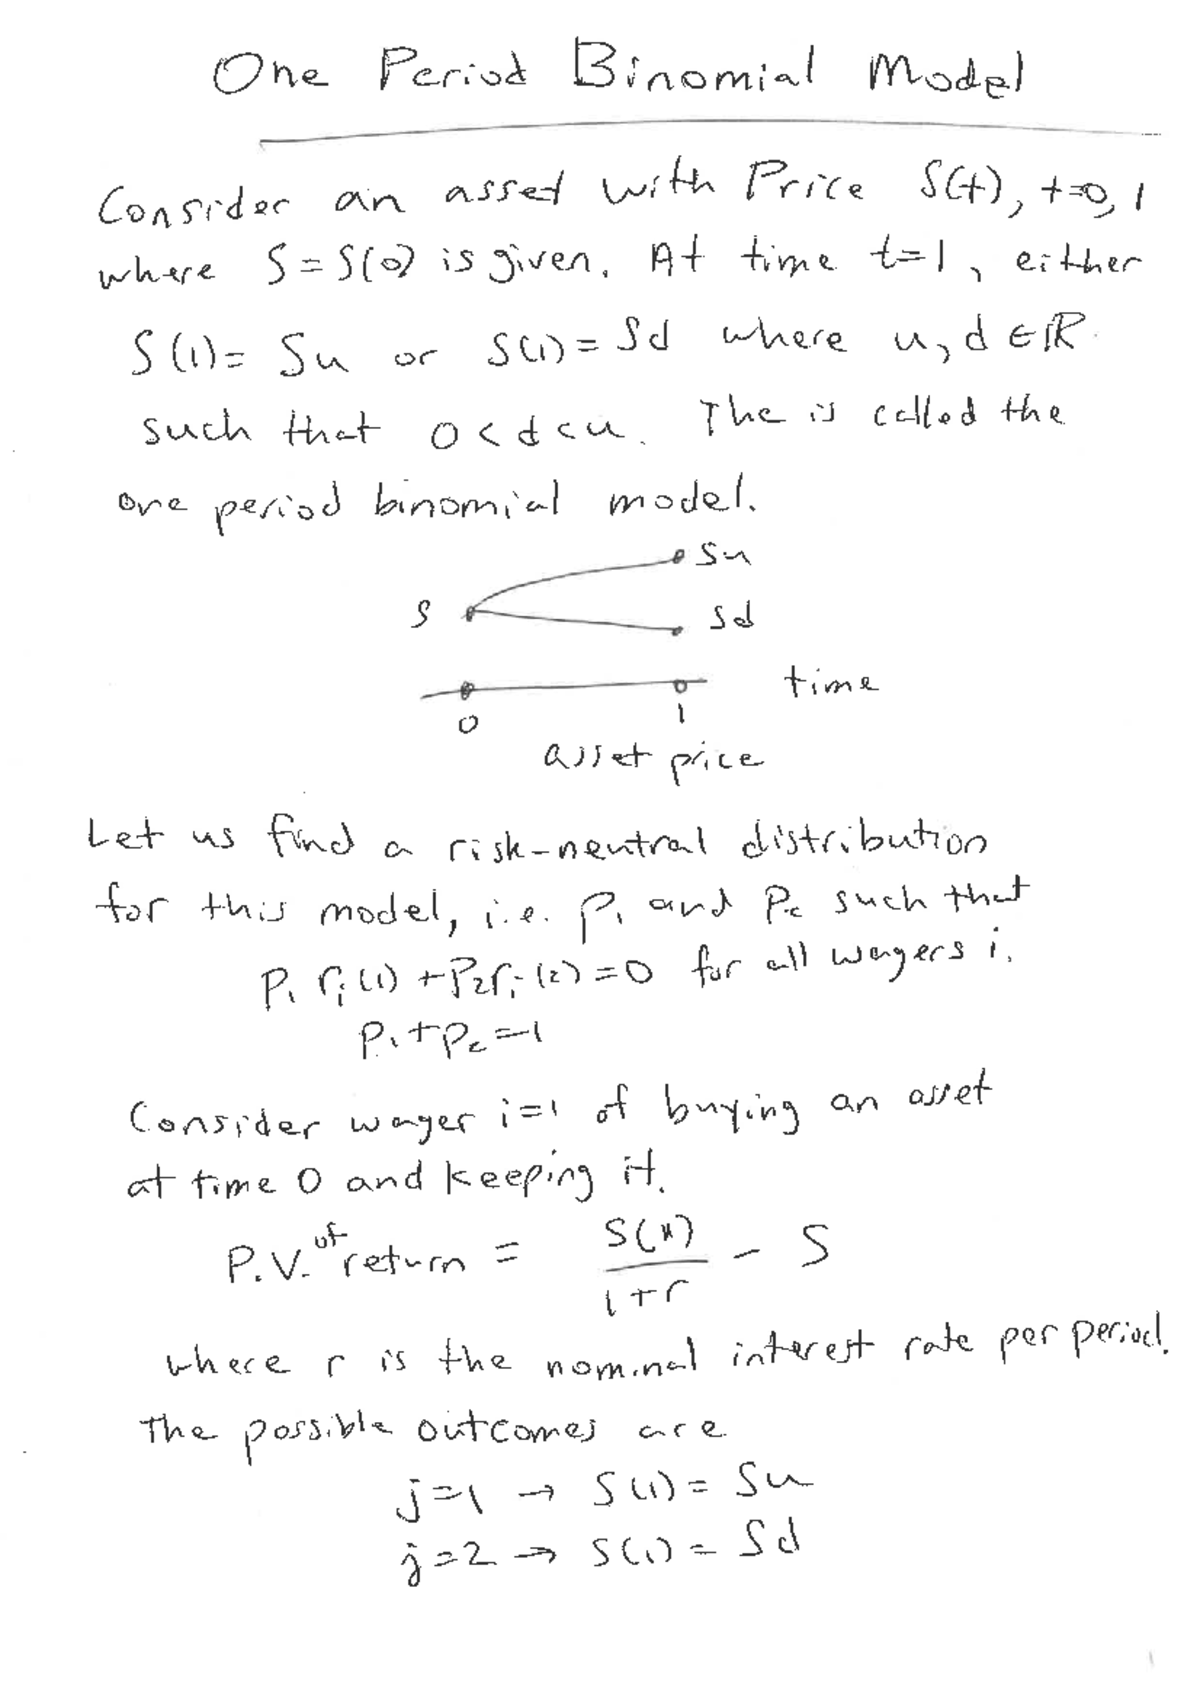 One Period Binomial Model
Consider an asset with Price S(t), t=0, 1
where S = S(0) is given. At time t=1, either
S(1) = Su or S(1) = Sd where u, d ∈ ℝ
such that 0 < d < u. The is called the
one period binomial model.
Su
S
Sd
time
0 1
asset price
Let us find a risk-neutral distribution
for this model, i.e. P₁ and P₂ such that
P₁ rᵢ(1) + P₂ rᵢ(2) = 0 for all wagers i.
P₁ + P₂ = 1
Consider wager i=1 of buying an asset
at time 0 and keeping it.
P.V. of return = S(1)/(1+r) - S
where r is the nominal interest rate per period.
The possible outcomes are
j=1 → S(1) = Su
j=2 → S(1) = Sd